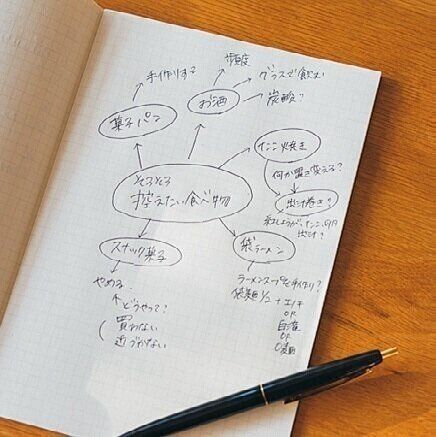 手作りする
頻度
グラスで飲む
炭酸?
菓子パン
お酒
たこ焼き
何か置き変える?
そろそろ
控えたい食べ物
出汁巻き?
紅しょうが、たこ、
出汁?
スナック菓子
袋ラーメン
やめる
どうやって?
買わない
近づかない
ラーメンスープを手作り?
袋麺1/2 + エノキ
or
or